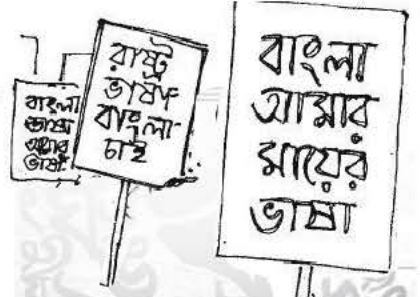 বাংলা
ভাষা
আমার
ভাষা
রাষ্ট্র
ভাষা
বাংলা
চাই
বাংলা
আমার
মায়ের
ভাষা